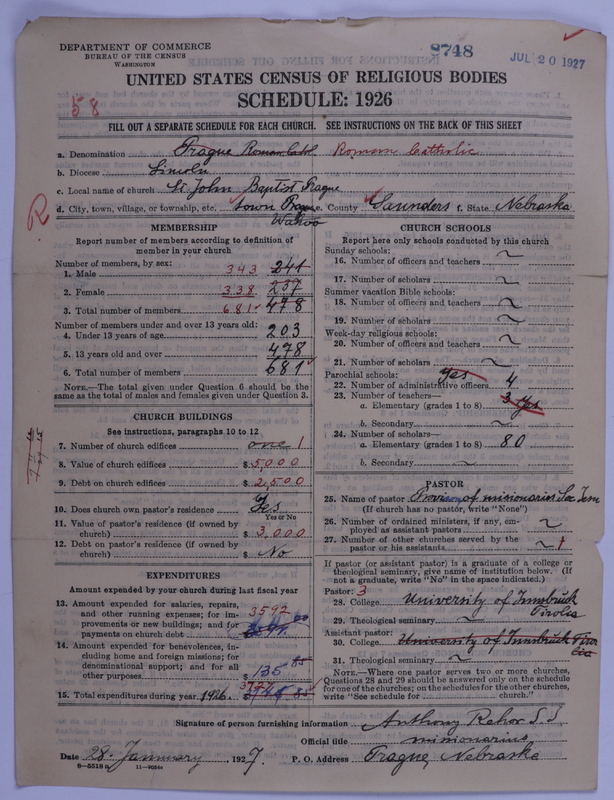 DEPARTMENT OF COMMERCE
BUREAU OF THE CENSUS
WASHINGTON
8748
JUL 20 1927
UNITED STATES CENSUS OF RELIGIOUS BODIES
SCHEDULE: 1926
58
FILL OUT A SEPARATE SCHEDULE FOR EACH CHURCH. SEE INSTRUCTIONS ON THE BACK OF THIS SHEET
a. Denomination Prague Roman Catol. Roman Catholic
b. Diocese Lincoln
c. Local name of church St John Baptist Prague
d. City, town, village, or township, etc. town Prague e. County Saunders f. State Nebraska
Wahoo
R
MEMBERSHIP
Report number of members according to definition of
member in your church
Number of members, by sex:
1. Male 343 241
2. Female 338 237
3. Total number of members 681 478
Number of members under and over 13 years old:
4. Under 13 years of age 203
5. 13 years old and over 478
6. Total number of members 681
NOTE.—The total given under Question 6 should be
same as the total of males and females given under Question 3.
CHURCH BUILDINGS
See instructions, paragraphs 10 to 12
7. Number of church edifices one 1
8. Value of church edifices $5,000
9. Debt on church edifices $2,500
10. Does church own pastor's residence? Yes
Yes or No
11. Value of pastor's residence (if owned by
church) $3,000
12. Debt on pastor's residence (if owned by
church) $ No
EXPENDITURES
Amount expended by your church during last fiscal year
13. Amount expended for salaries, repairs,
and other running expenses; for im-
provements or new buildings; and for
payments on church debt 3592
14. Amount expended for benevolences, in-
cluding home and foreign missions; for
denominational support; and for all
other purposes $ 135
15. Total expenditures during year 1926 $
CHURCH SCHOOLS
Report here only schools conducted by this church
Sunday schools:
16. Number of officers and teachers ~
17. Number of scholars ~
Summer vacation Bible schools:
18. Number of officers and teachers ~
19. Number of scholars ~
Week-day religious schools:
20. Number of officers and teachers ~
21. Number of scholars ~
Parochial schools: yes
22. Number of administrative officers 4
23. Number of teachers—
a. Elementary (grades 1 to 8) 3 yes
b. Secondary ~
24. Number of scholars—
a. Elementary (grades 1 to 8) 80
b. Secondary ~
PASTOR
25. Name of pastor of missionaries Soc Jesu
(If church has no pastor, write "None")
26. Number of ordained ministers, if any, em-
ployed as assistant pastors ~
27. Number of other churches served by the
pastor or his assistants ~ 1
If pastor (or assistant pastor) is a graduate of a college or
theological seminary, give name of institution below. (If
not a graduate, write "No" in the space indicated.)
Pastor: 3
28. College University of Innsbruck
Tirolis
29. Theological seminary ~
Assistant pastor:
30. College University of Innsbruck
31. Theological seminary ~
NOTE.—Where one pastor serves two or more churches,
Questions 28 and 29 should be answered only on the schedule
for one of the churches; on the schedules for the other churches,
write "See schedule for church."
Signature of person furnishing information Anthony Rehor S.J.
Official title missionarius
Date 28. January, 1927. P. O. Address Prague, Nebraska
8—5518a 11—9054a